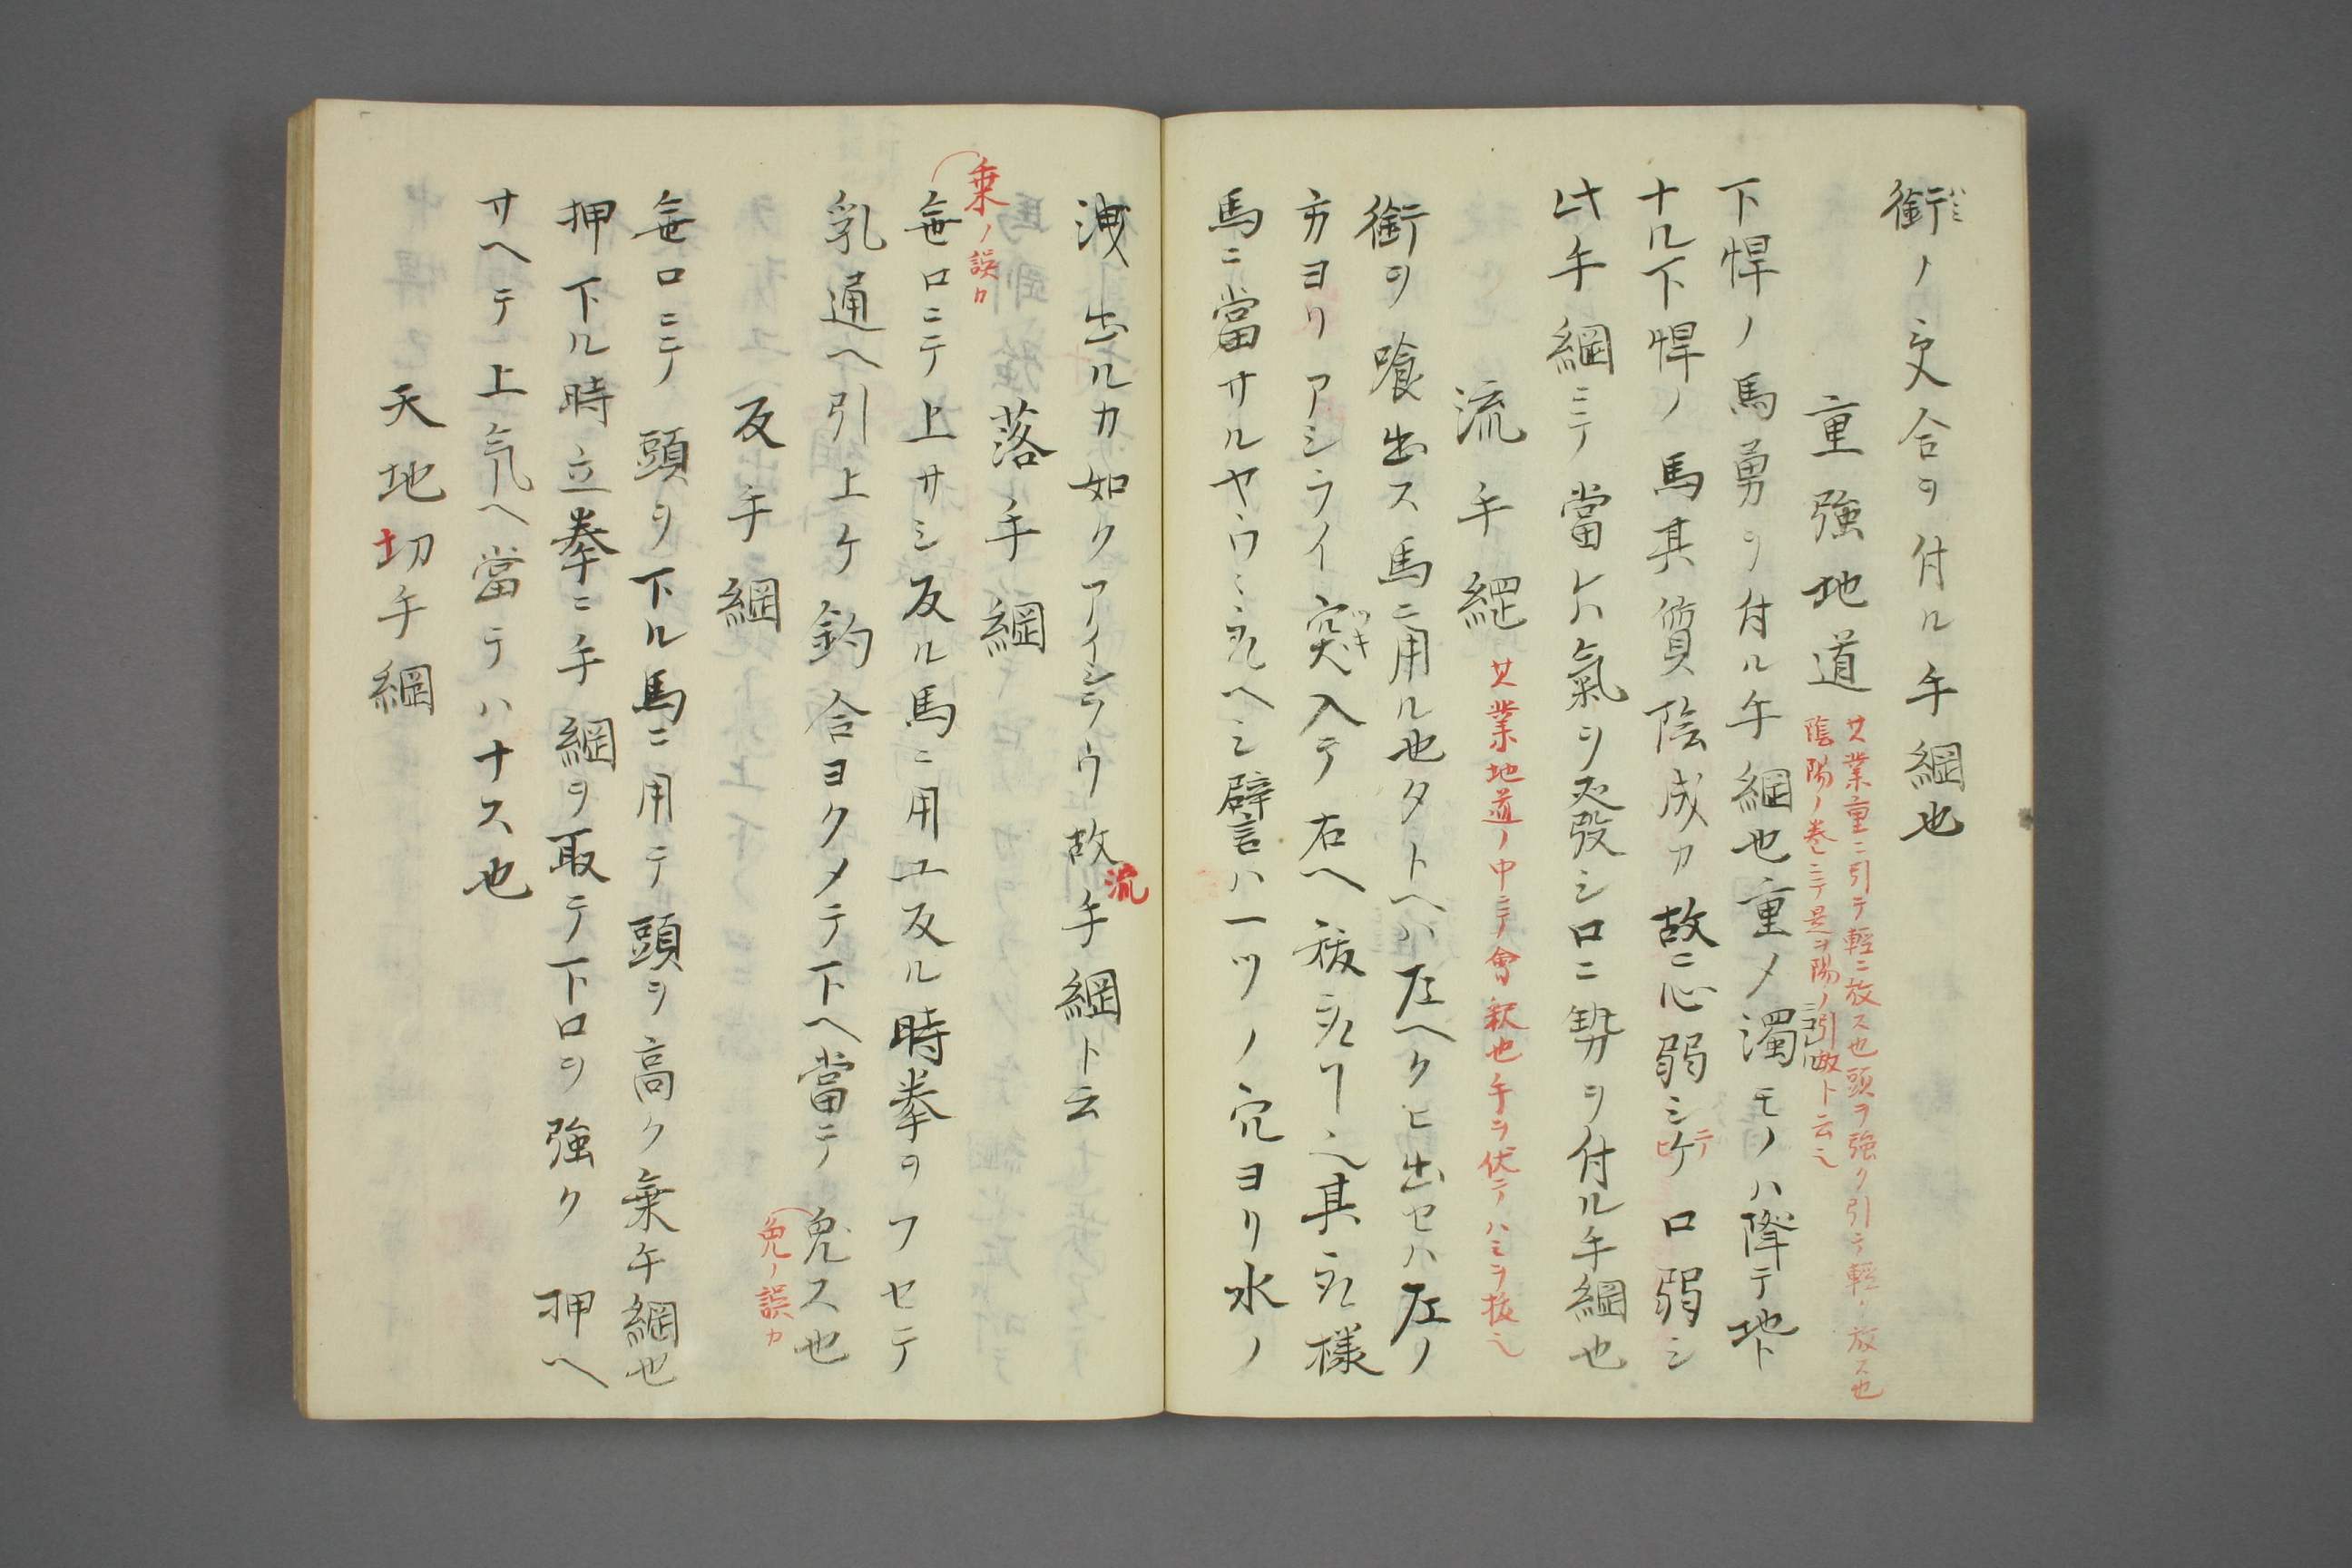 銜ノ交合ヲ付ル手綱也
ハミ
重強地道
其業重ニ引テ軽ニ放ス也頭ヲ強ク引テ軽ク放ス也
陰陽ノ巻ニテ是ヲ陽ノ引
下悍ノ馬勇ヲ付ル手綱也重メ濁モノハ降テ地ト
ナル下悍ノ馬其質陰成カ故ニ心弱シケロ弱シ
此手綱ニテ當レハ氣ヲ發シ口ニ勢ヲ付ル手綱也
流手綱
其業地道ノ中ニテ會釈也手ヲ伏テハミヲ抜
銜ヲ喰出ス馬ニ用ル也タトヘハ左ヘクヒ出セハ左ノ
方ヨリアシライ突入テ右ヘ
ツキ
馬ニ當サルヤウニ ヘシ譬言ハ一ツノ穴ヨリ水ノ
洩出ルカ如クアイシラウ故流手綱ト云
落手綱
乗ノ誤カ
口ニテ上サシ反ル馬ニ用ユ反ル時拳ヲフセテ
乳通ヘ引上ケ釣合ヨクメテ下ヘ當ニテ兔ス也
免ノ誤カ
反手綱
口ニテ頭ヲ下ル馬ニ用テ頭ヲ高ク乗手綱也
押下ル時立拳ニ手綱ヲ取テ下口ヲ強ク押ヘ
サヘテ上氣ヘ當テハナス也
天地切手綱